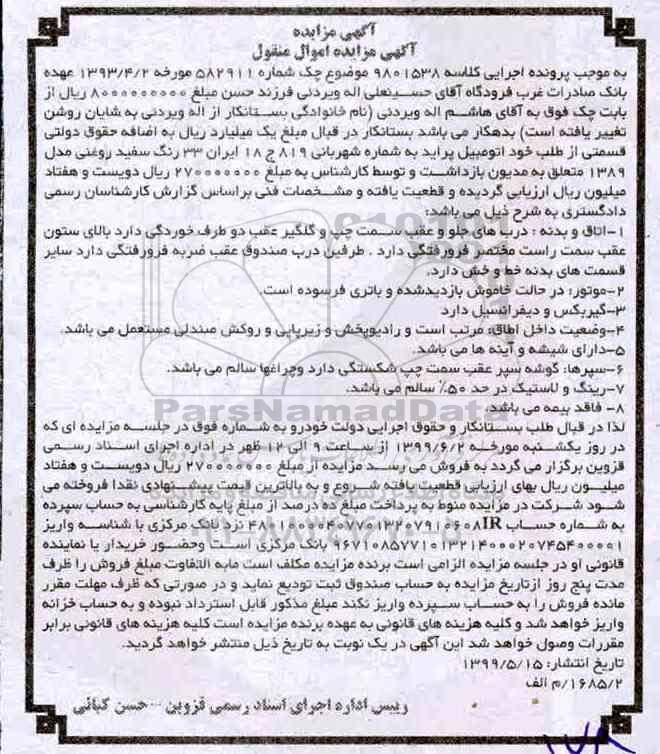 آگهی مزایده
آگهی مزایده اموال منقول
به موجب پرونده اجرایی کلاسه ۹۸۰۱۵۳۸ موضوع چک شماره ۵۸۲۹۱۱ مورخه ۱۳۹۳/۴/۲ عهده
بانک صادرات غرب فرودگاه آقای حسینعلی اله ویردئی فرزند حسن مبلغ ۸۰۰۰۰۰۰۰۰۰ ریال از
بابت چک فوق به آقای هاشم اله ویردئی (نام خانوادگی بستانکار از اله ویردئی به شایان روشن
تغییر یافته است) بدهکار می باشد بستانکار در قبال مبلغ یک میلیارد ریال به اضافه حقوق دولتی
قسمتی از طلب خود اتومبیل پراید به شماره شهربانی ۸۱۹ ج ۱۸ ایران ۳۳ رنگ سفید روغنی مدل
۱۳۸۹ متعلق به مدیون بازداشت و توسط کارشناس به مبلغ ۲۷۰۰۰۰۰۰۰ ریال دویست و هفتاد
میلیون ریال ارزیابی گردیده و قطعیت یافته و مشخصات فنی براساس گزارش کارشناسان رسمی
دادگستری به شرح ذیل می باشد:
۱-اتاق و بدنه : درب های جلو و عقب سمت چپ و گلگیر عقب دو طرف خوردگی دارد بالای ستون
عقب سمت راست مختصر فرورفتگی دارد . طرفین درب صندوق عقب ضربه فرورفتگی دارد سایر
قسمت های بدنه خط و خش دارد.
۲-موتور: در حالت خاموش بازدیدشده و باتری فرسوده است.
۳-گیربکس و دیفرانسیل دارد
۴-وضعیت داخل اطاق: مرتب است و رادیوپخش و زیرپایی و روکش صندلی مستعمل می باشد.
۵-دارای شیشه و آینه ها می باشد.
۶-سپرها: گوشه سپر عقب سمت چپ شکستگی دارد وچراغها سالم می باشد.
۷-رینگ و لاستیک در حد ۵۰٪ سالم می باشد.
۸- فاقد بیمه می باشد.
لذا در قبال طلب بستانکار و حقوق اجرایی دولت خودرو به شماره فوق در جلسه مزایده ای که
در روز یکشنبه مورخه ۱۳۹۹/۶/۲ از ساعت ۹ الی ۱۲ ظهر در اداره اجرای اسناد رسمی
قزوین برگزار می گردد به فروش می رسد مزایده از مبلغ ۲۷۰۰۰۰۰۰۰ ریال دویست و هفتاد
میلیون ریال بهای ارزیابی قطعیت یافته شروع و به بالاترین قیمت پیشنهادی نقدا فروخته می
شود شرکت در مزایده منوط به پرداخت مبلغ ده درصد از مبلغ پایه کارشناسی به حساب سپرده
به شماره حساب نزد بانک مرکزی با شناسه واریز
بانک مرکزی است وحضور خریدار یا نماینده
قانونی او در جلسه مزایده الزامی است برنده مزایده مکلف است مابه التفاوت مبلغ فروش را ظرف
مدت پنج روز ازتاریخ مزایده به حساب صندوق ثبت تودیع نماید و در صورتی که ظرف مهلت مقرر
مانده فروش را به حساب سپرده واریز نکند مبلغ مذکور قابل استرداد نبوده و به حساب خزانه
واریز خواهد شد و کلیه هزینه های قانونی به عهده برنده مزایده است کلیه هزینه های قانونی برابر
مقررات وصول خواهد شد این آگهی در یک نوبت به تاریخ ذیل منتشر خواهد گردید.
تاریخ انتشار: ۱۳۹۹/۵/۱۵
۱۶۸۵/۲/م الف
رییس اداره اجرای اسناد رسمی قزوین - حسن کیائی
ParsNamadData